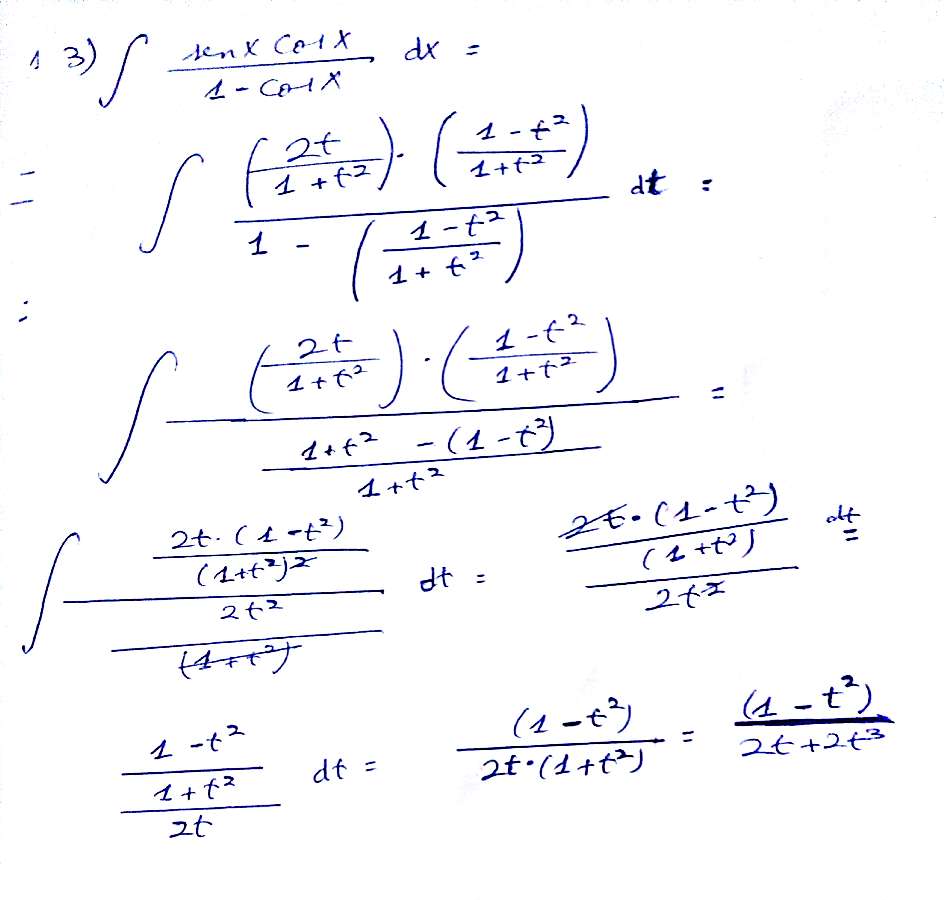 13) ∫ (sen x cos x)/(1 - cos x) dx =
= ∫ ((2t)/(1+t²))·((1-t²)/(1+t²)) / (1 - ((1-t²)/(1+t²))) dt =
= ∫ ((2t)/(1+t²))·((1-t²)/(1+t²)) / ((1+t² - (1-t²))/(1+t²)) =
∫ ((2t·(1-t²))/(1+t²)²) / ((2t²)/(1+t²)) dt = ((2t·(1-t²))/(1+t²)) / (2t²) dt =
((1-t²)/(1+t²)) / (2t) dt = (1-t²)/(2t·(1+t²)) = (1-t²)/(2t+2t³)